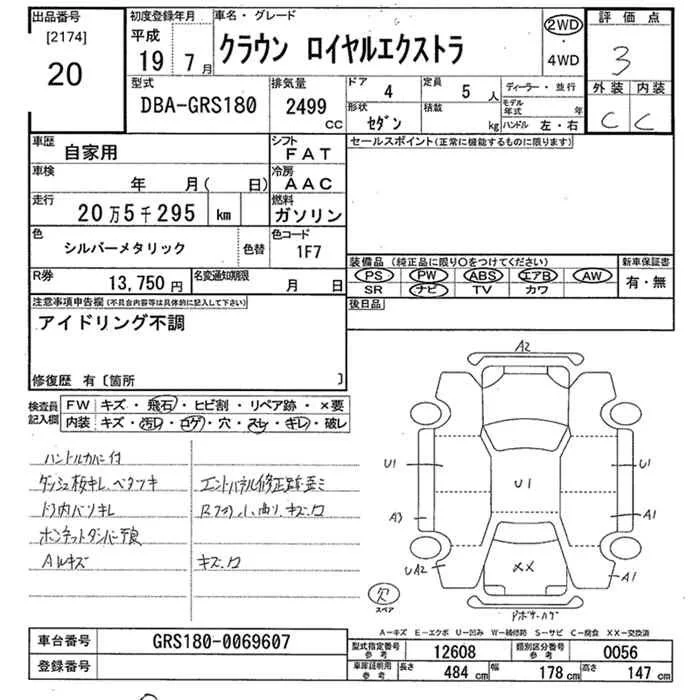 出品番号
[2174]
20
初度登録年月
平成
19年 7月
車名・グレード
クラウン ロイヤルエクストラ
2WD
・
4WD
評価点
3
外装 内装
C C
型式
DBA-GRS180
排気量
2499
CC
ドア 4
定員 5 人
ディーラー・並行
形状 セダン
積載 kg
モデル年式 年
ハンドル 左・右
車歴
自家用
シフト
FAT
車検
年 月( 日)
冷房
AAC
走行
20万5千295 km
燃料
ガソリン
色
シルバーメタリック
色替
色コード
1F7
R券
13,750円
名変通知期限
月 日
セールスポイント(正常に機能するものに限ります)
装備品 (純正品に限り○をつけてください)
PS PW ABS エアB AW
SR ナビ TV カワ
新車保証書
有・無
後日品
注意事項申告欄(不具合内容等は具体的に記入して下さい)
アイドリング不調
修復歴 有〔箇所 〕
検査員記入欄
FW キズ・飛石・ヒビ割・リペア跡・×要
内装 キズ・汚レ・コゲ・穴・スレ・キレ・破レ
ハンドルカバー付
ダッシュ板キレ、ベタツキ
ドア内バリキレ
ボンネットダンパー不良
AWキズ
エンドパネル修正跡歪ミ
Rフロ小曲リ、キズ、ワ
キズ、ワ
A2
U1
U1
U1
A3
A1
UA2
XX
A1
欠
スペア
A−キズ E−エクボ U−凹み W−補修跡 S−サビ C−腐食 XX−交換済
車台番号
GRS180-0069607
登録番号
型式指定番号
参考
12608
類別区分番号
参考
0056
車庫証明用
参考
長さ 484 cm
幅 178 cm
高さ 147 cm